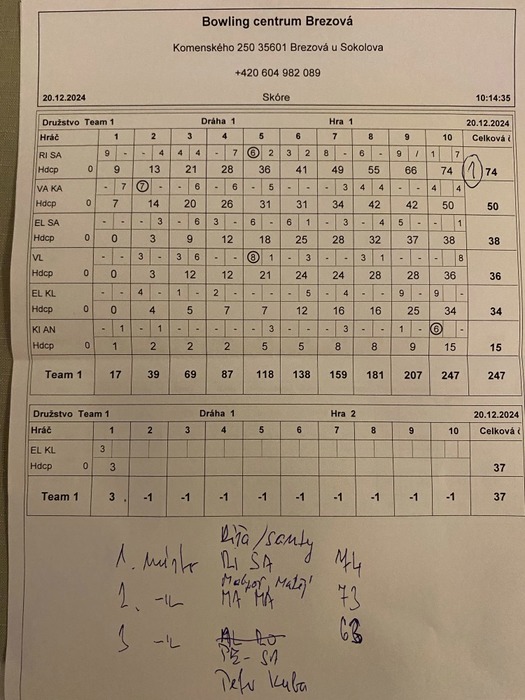 Bowling centrum Brezová
Komenského 250 35601 Brezová u Sokolova
+420 604 982 089
20.12.2024 Skóre 10:14:35
Družstvo Team 1 Dráha 1 Hra 1 20.12.2024
Hráč 1 2 3 4 5 6 7 8 9 10 Celková č
RI SA 9 - - 4 4 4 - 7 6 2 3 2 8 - 6 - 9 / 1 7
Hdcp 0 9 13 21 28 36 41 49 55 66 74 1 74
VA KA - 7 7 - - 6 - 6 - 5 - - - 3 4 4 - - 4 4
Hdcp 0 7 14 20 26 31 31 34 42 42 50 50
EL SA - - - 3 - 6 3 - 6 - 6 1 - 3 - 4 5 - - 1
Hdcp 0 0 3 9 12 18 25 28 32 37 38 38
VL - - 3 - 3 6 - - 8 1 - 3 - - 3 1 - - - 8
Hdcp 0 0 3 12 12 21 24 24 28 28 36 36
EL KL - - 4 - 1 - 2 - - - - 5 - 4 - - 9 - 9 -
Hdcp 0 0 4 5 7 7 12 16 16 25 34 34
KI AN - 1 - 1 - - - - - 3 - - - 3 - - 1 - 6 -
Hdcp 0 1 2 2 2 5 5 8 8 9 15 15
Team 1 17 39 69 87 118 138 159 181 207 247 247
Družstvo Team 1 Dráha 1 Hra 2 20.12.2024
Hráč 1 2 3 4 5 6 7 8 9 10 Celková č
EL KL 3
Hdcp 0 3 37
Team 1 3 -1 -1 -1 -1 -1 -1 -1 -1 -1 37
1. místo RI SA 74
2. MA MA 73
3
PE - SA
Petr Kuba